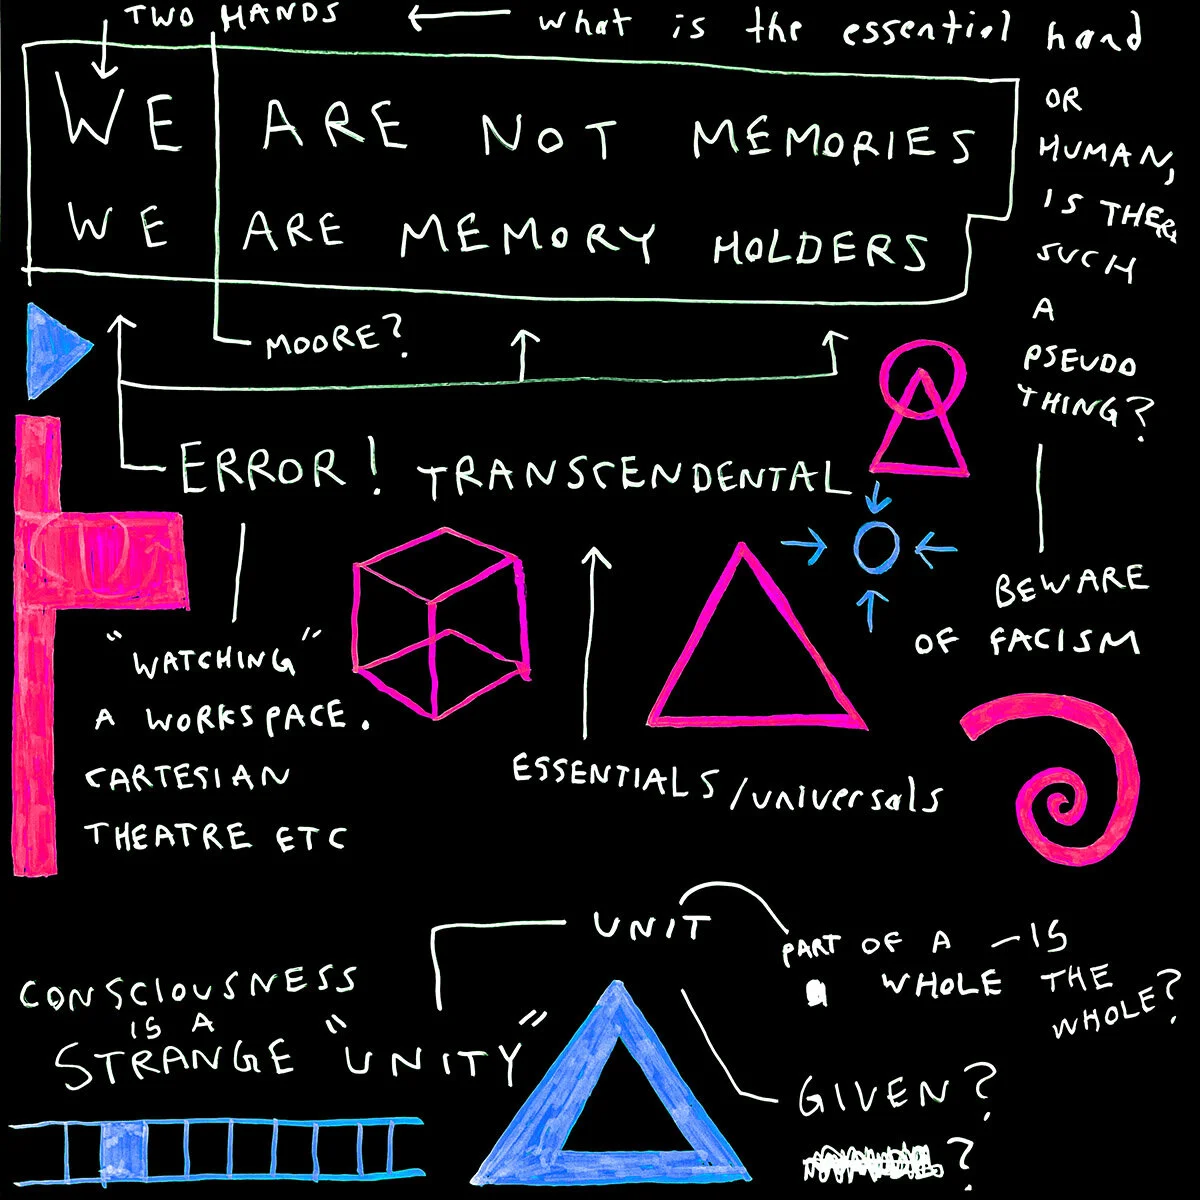 TWO HANDS ← what is the essential hand
OR
HUMAN,
IS THERE
SUCH
A
PSEUDO
THING?
WE ARE NOT MEMORIES
WE ARE MEMORY HOLDERS
MOORE?
ERROR! TRANSCENDENTAL
BEWARE
OF FACISM
"WATCHING"
A WORKSPACE.
CARTESIAN
THEATRE ETC
ESSENTIALS/universals
UNIT
PART OF A — IS
WHOLE THE
WHOLE?
CONSCIOUSNESS
IS A
STRANGE "UNITY"
GIVEN?
?